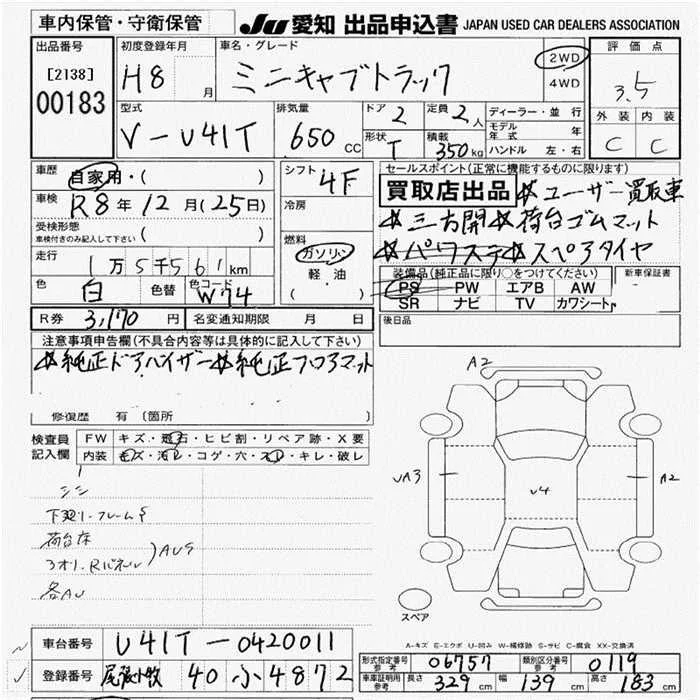 車内保管・守衛保管
JU 愛知 出品申込書 JAPAN USED CAR DEALERS ASSOCIATION
出品番号
[2138]
00183
初度登録年月
H8 月
車名・グレード
ミニキャブトラック
2WD
4WD
評価点
3.5
外装 内装
C C
型式
V-U41T
排気量
650 CC
ドア 2
形状 T
定員 2人
積載 350kg
ディーラー・並行
モデル年式 年
ハンドル 左・右
車歴
自家用・( )
車検 R8年12月(25日)
受検形態
車検付きのみ記入して下さい ( )
走行
1万5千561km
色 白 色替 色コード W74
シフト
4F
冷房
燃料
ガソリン
軽油
( )
セールスポイント(正常に機能するものに限ります)
買取店出品 ユーザー買取車
三方開 荷台ゴムマット
パワステ スペアタイヤ
装備品(純正品に限り○をつけてください)
PS PW エアB AW
SR ナビ TV カワシート
新車保証書
-
R券 3,170円 名変通知期限 月 日
後日品
注意事項申告欄(不具合内容等は具体的に記入して下さい)
純正ドアバイザー 純正フロアマット
修復歴 有 〔箇所
検査員記入欄
FW キズ・飛石・ヒビ割・リペア跡・X要
内装 キズ・汚レ・コゲ・穴・スレ・キレ・破レ
荷台床
各AU
A2
UA3
U4
A2
スペア
A-キズ E-エクボ U-凹み W-補修跡 S-サビ C-腐食 XX-交換済
車台番号 U41T-0420011
登録番号 尾張小牧 40 ふ 4872
型式指定番号参考 06757 類別区分番号参考 0119
車庫証明用参考 長さ 329cm 幅 139cm 高さ 183cm